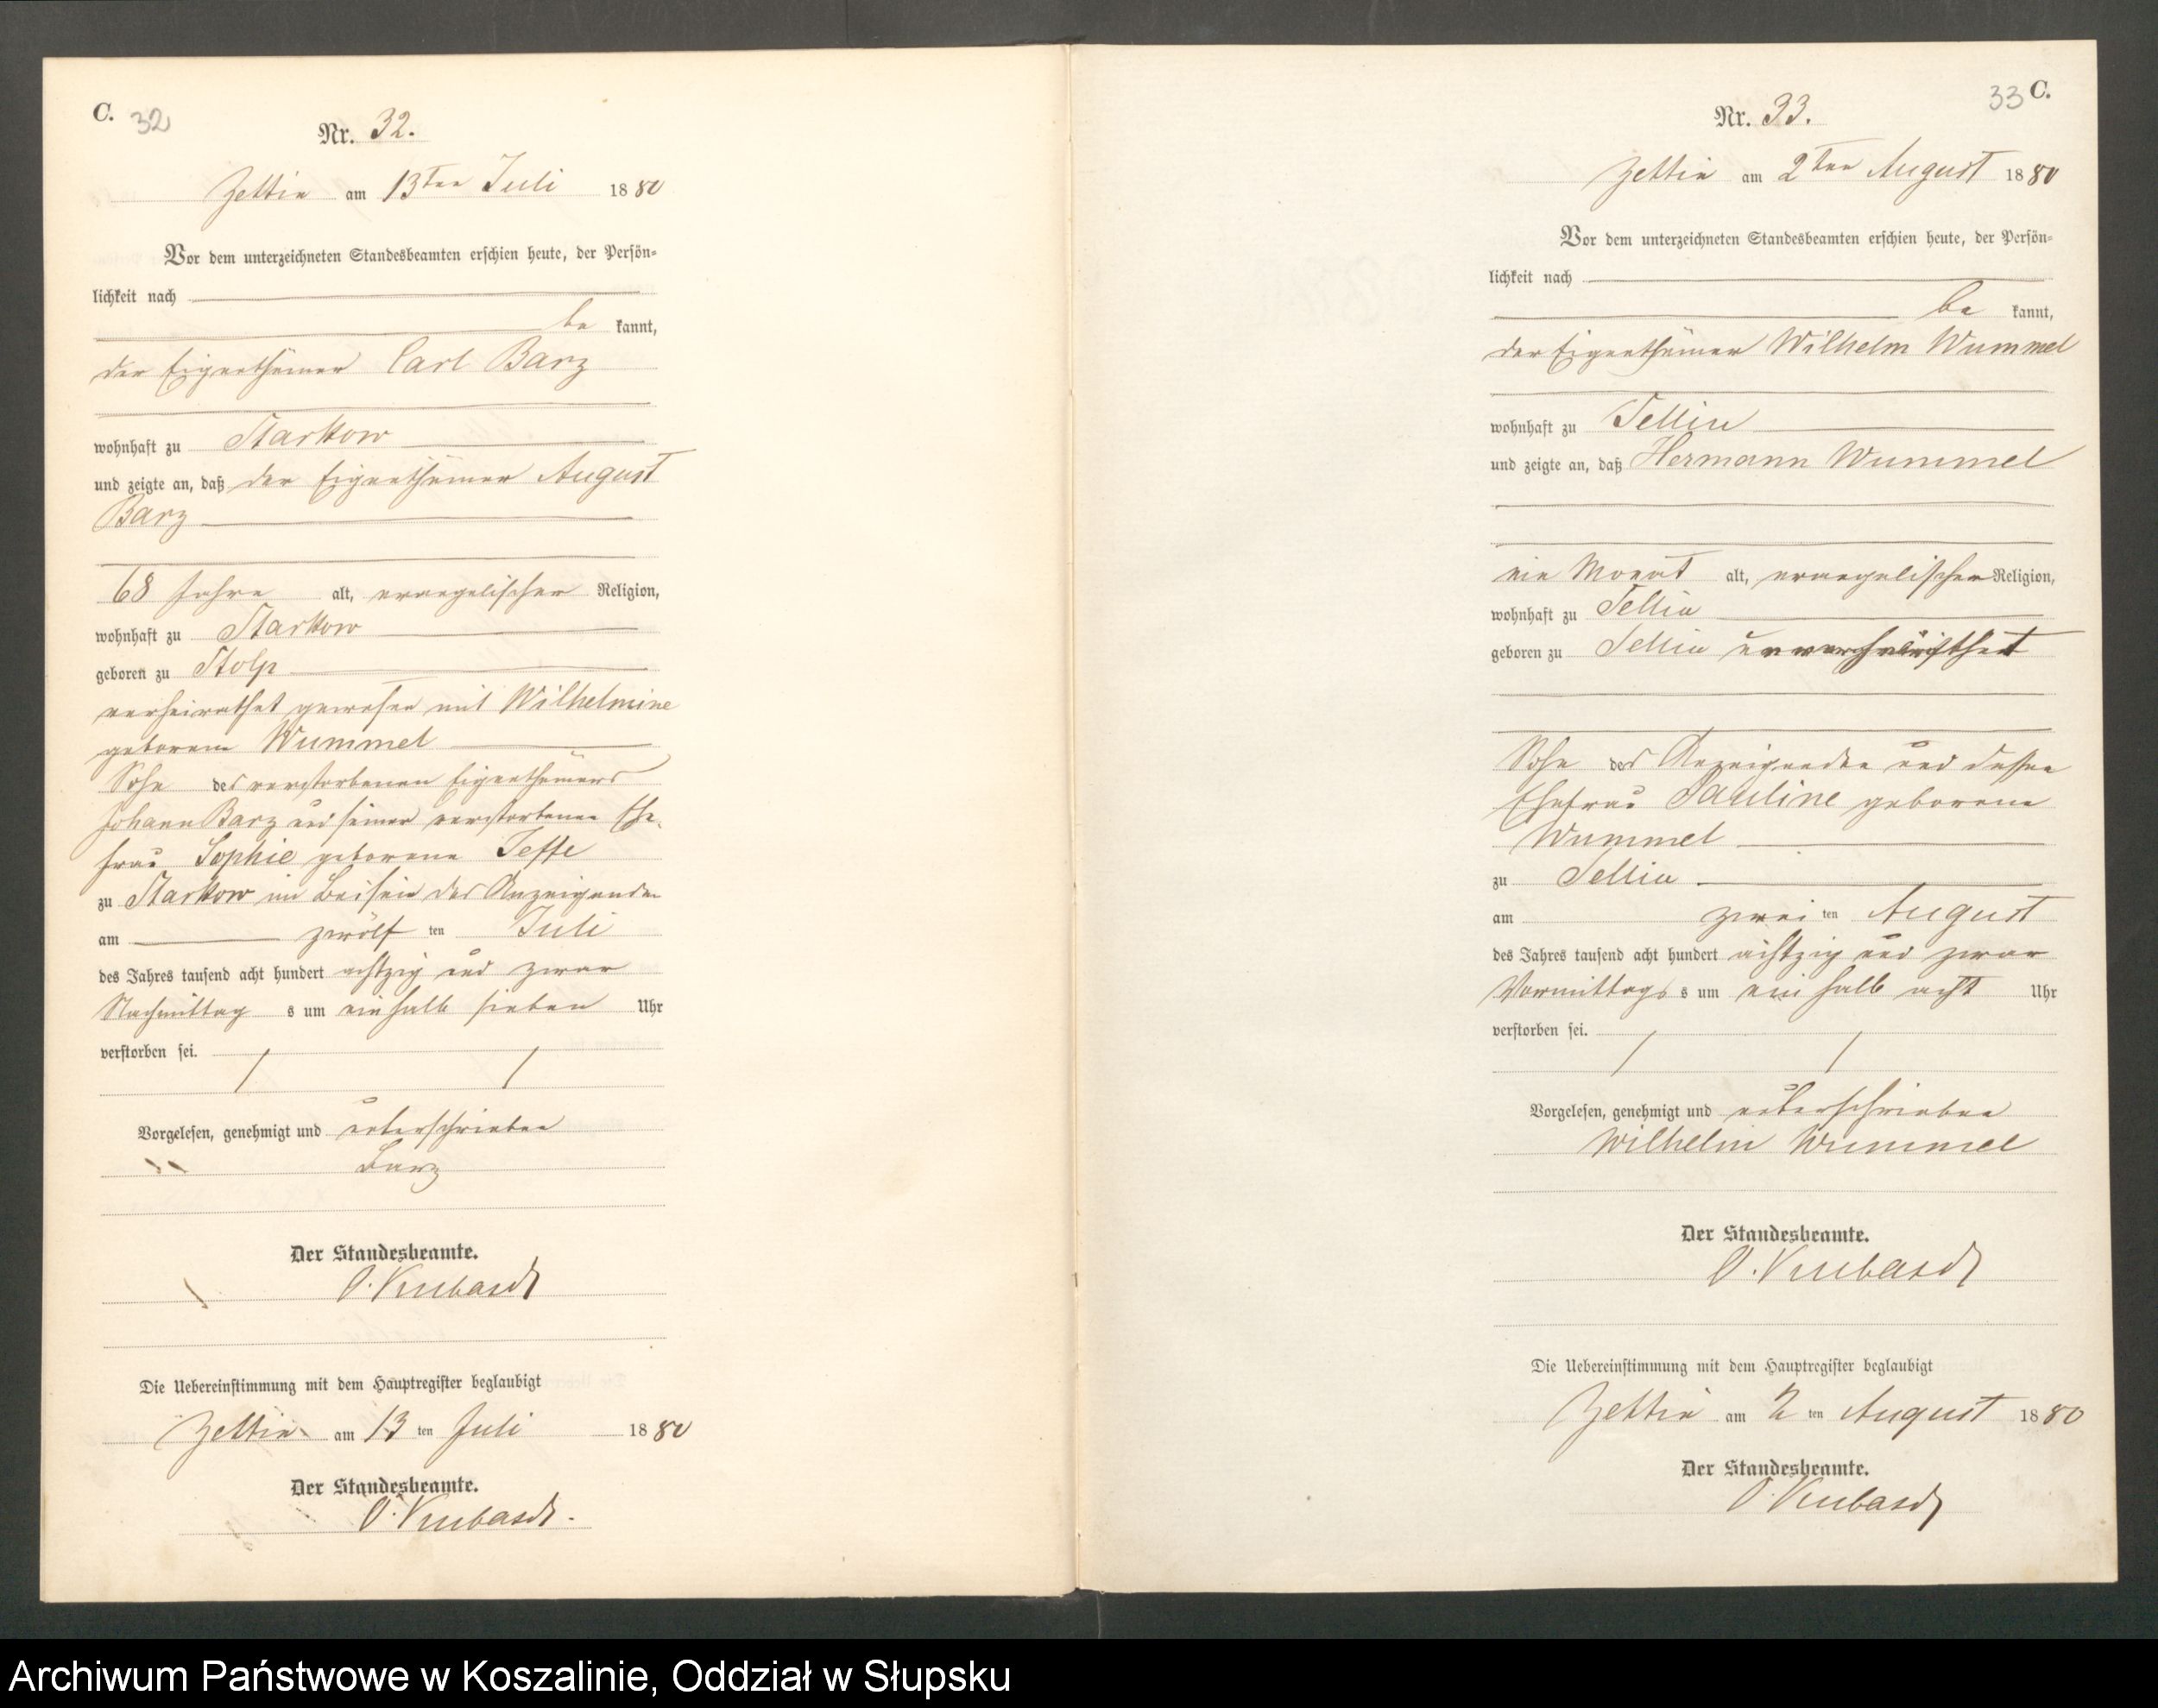 C. 32
Nr. 32.
Zettin am 13ten Juli 1880
Vor dem unterzeichneten Standesbeamten erschien heute, der Persön-
lichkeit nach
be kannt,
der Eigenthümer Carl Barz
wohnhaft zu Starkow
und zeigte an, daß der Eigenthümer August
Barz
68 Jahre alt, evangelischer Religion,
wohnhaft zu Starkow
geboren zu Stolp
verheirathet gewesen mit Wilhelmine
geborene Wummel
Sohn des verstorbenen Eigenthümers
Johann Barz und seiner verstorbenen Ehe-
frau Sophie geborene
zu Starkow im Beisein des Anzeigenden
am zwölf ten Juli
des Jahres tausend acht hundert achtzig und zwar
Nachmittag s um ein halb sieben Uhr
verstorben sei.
Vorgelesen, genehmigt und unterschrieben
Barz
Der Standesbeamte.
O.
Die Uebereinstimmung mit dem Hauptregister beglaubigt
Zettin am 13 ten Juli 1880
Der Standesbeamte.
O.
33 C.
Nr. 33.
Zettin am 2ten August 1880
Vor dem unterzeichneten Standesbeamten erschien heute, der Persön-
lichkeit nach
be kannt,
der Eigenthümer Wilhelm Wummel
wohnhaft zu Sellin
und zeigte an, daß Hermann Wummel
ein Monat alt, evangelischer Religion,
wohnhaft zu Sellin
geboren zu Sellin
Sohn des Anzeigenden und dessen
Ehefrau Pauline geborene
Wummel
zu Sellin
am zwei ten August
des Jahres tausend acht hundert achtzig und zwar
Vormittags s um ein halb acht Uhr
verstorben sei.
Vorgelesen, genehmigt und unterschrieben
Wilhelm Wummel
Der Standesbeamte.
O.
Die Uebereinstimmung mit dem Hauptregister beglaubigt
Zettin am 2 ten August 1880
Der Standesbeamte.
O.
Archiwum Państwowe w Koszalinie, Oddział w Słupsku